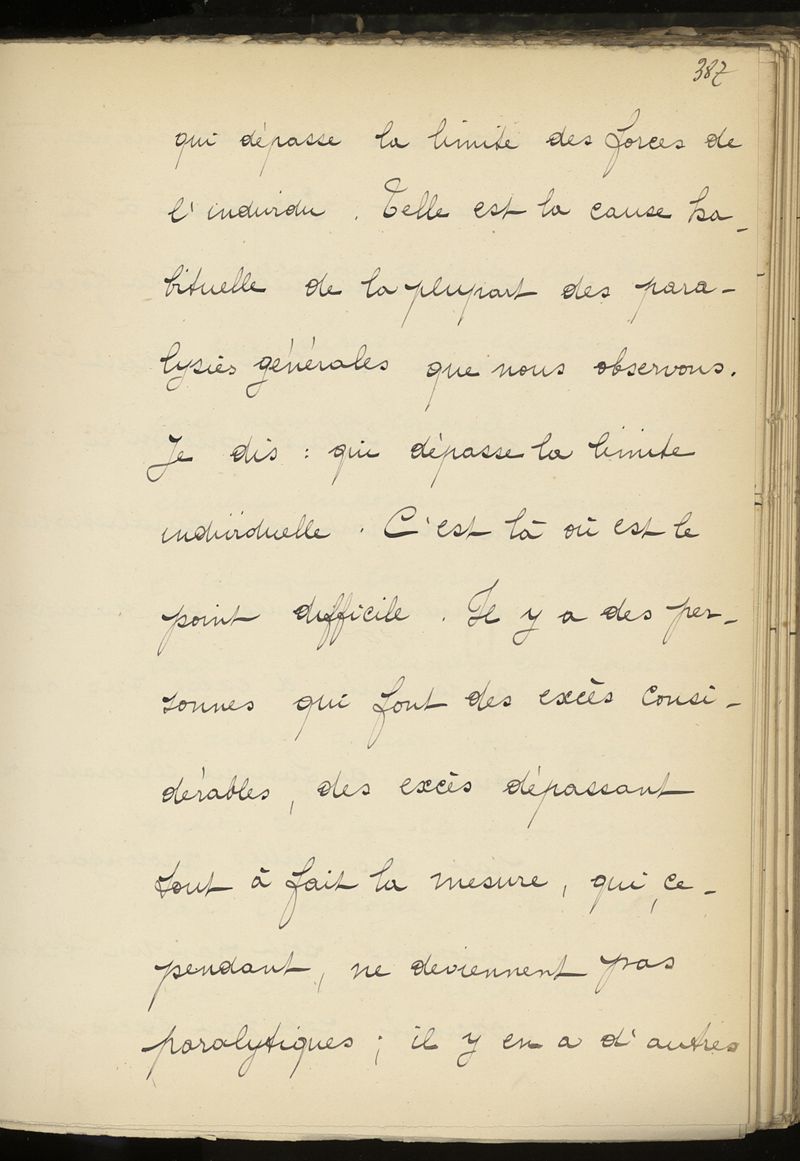 387
qui dépasse la limite des forces de
l'individu. Telle est la cause ha-
bituelle de la plupart des para-
lysies générales que nous observons.
Je dis : qui dépasse la limite
individuelle. C'est là où est le
point difficile. Il y a des per-
sonnes qui font des excès consi-
dérables, des excès dépassant
tout à fait la mesure, qui, ce-
pendant, ne deviennent pas
paralytiques ; il y en a d'autres